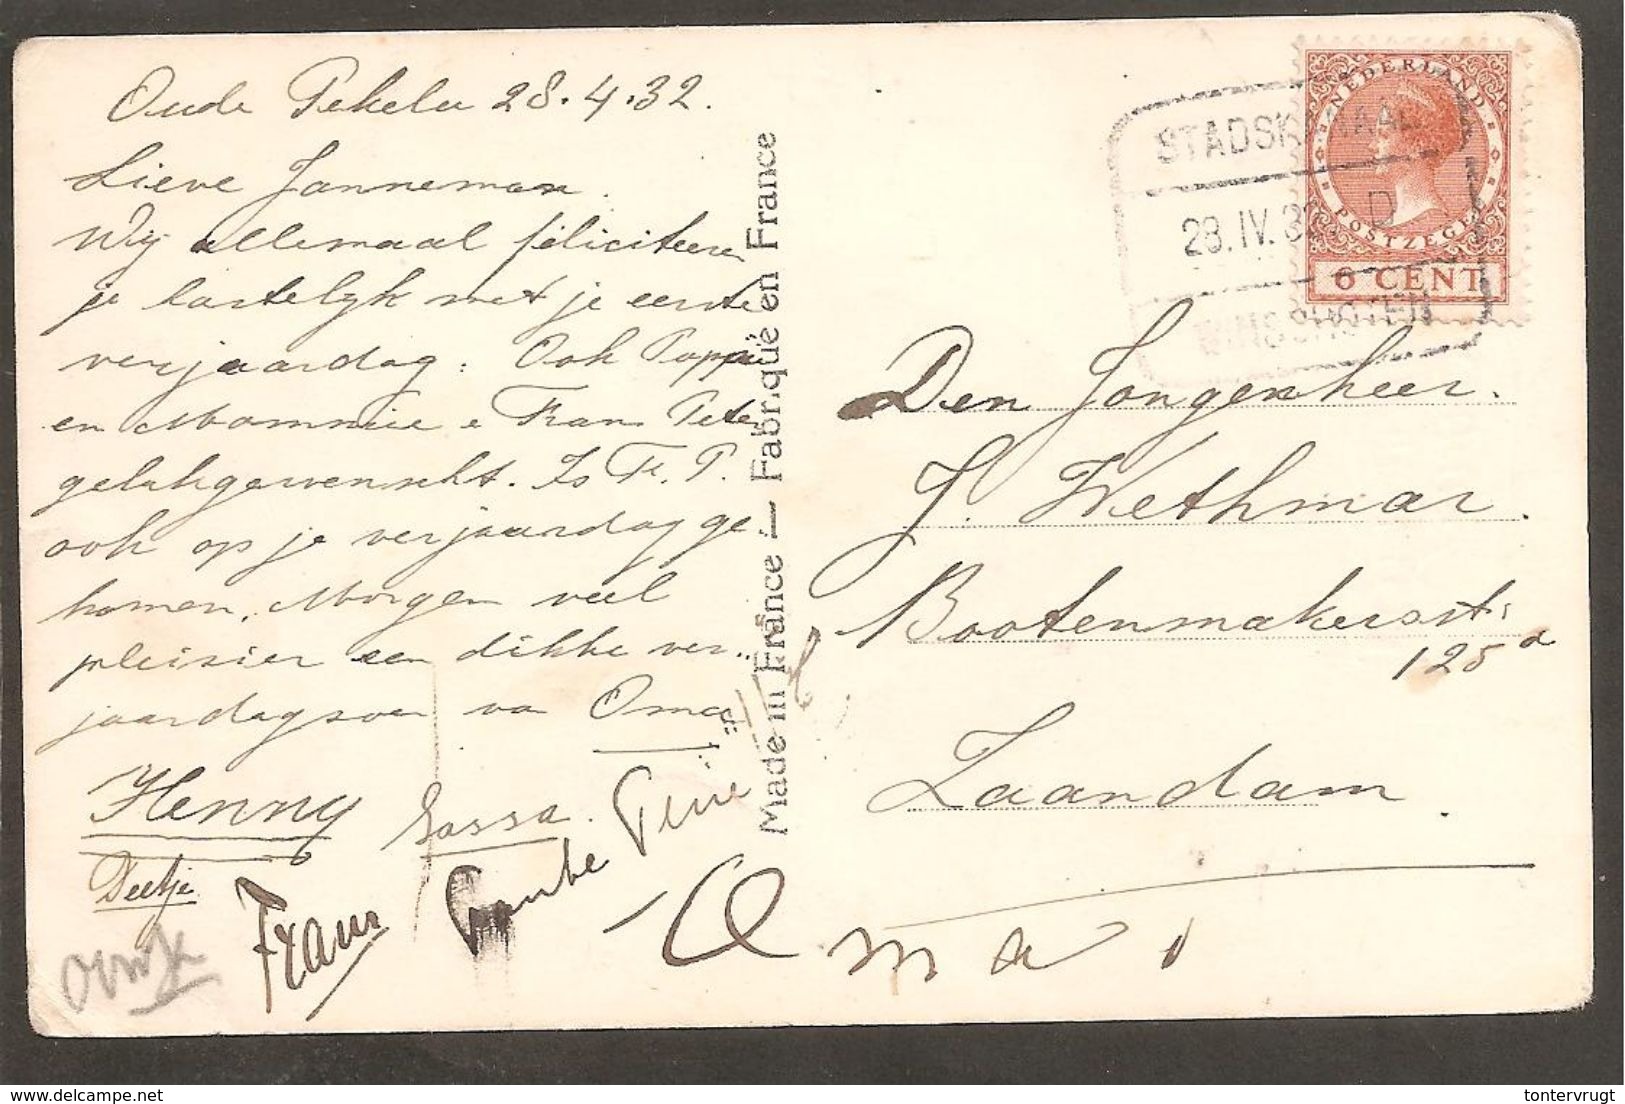 Oude Pekela 28.4.32.
Lieve Janneman.
Wij allemaal feliciteeren
je hartelijk met je eerste
verjaardag. Ook Pappie
en Mammie e Frans Peter
gelukgewenscht. Is F. P.
ook op je verjaardag ge
komen. Morgen veel
pleisier een dikke ver
jaardagszoen van Oma
Henny Sassa.
Deetje
Frans Tante
Oma
Made in France — Fabriqué en France
NEDERLAND
POSTZEGEL
6 CENT
STADSKANAAL
28.IV.32 D
Den Jongenheer.
J. Wethmar.
Bootenmakersst.
125 a
Zaandam.
delcampe.net
tontervrugt